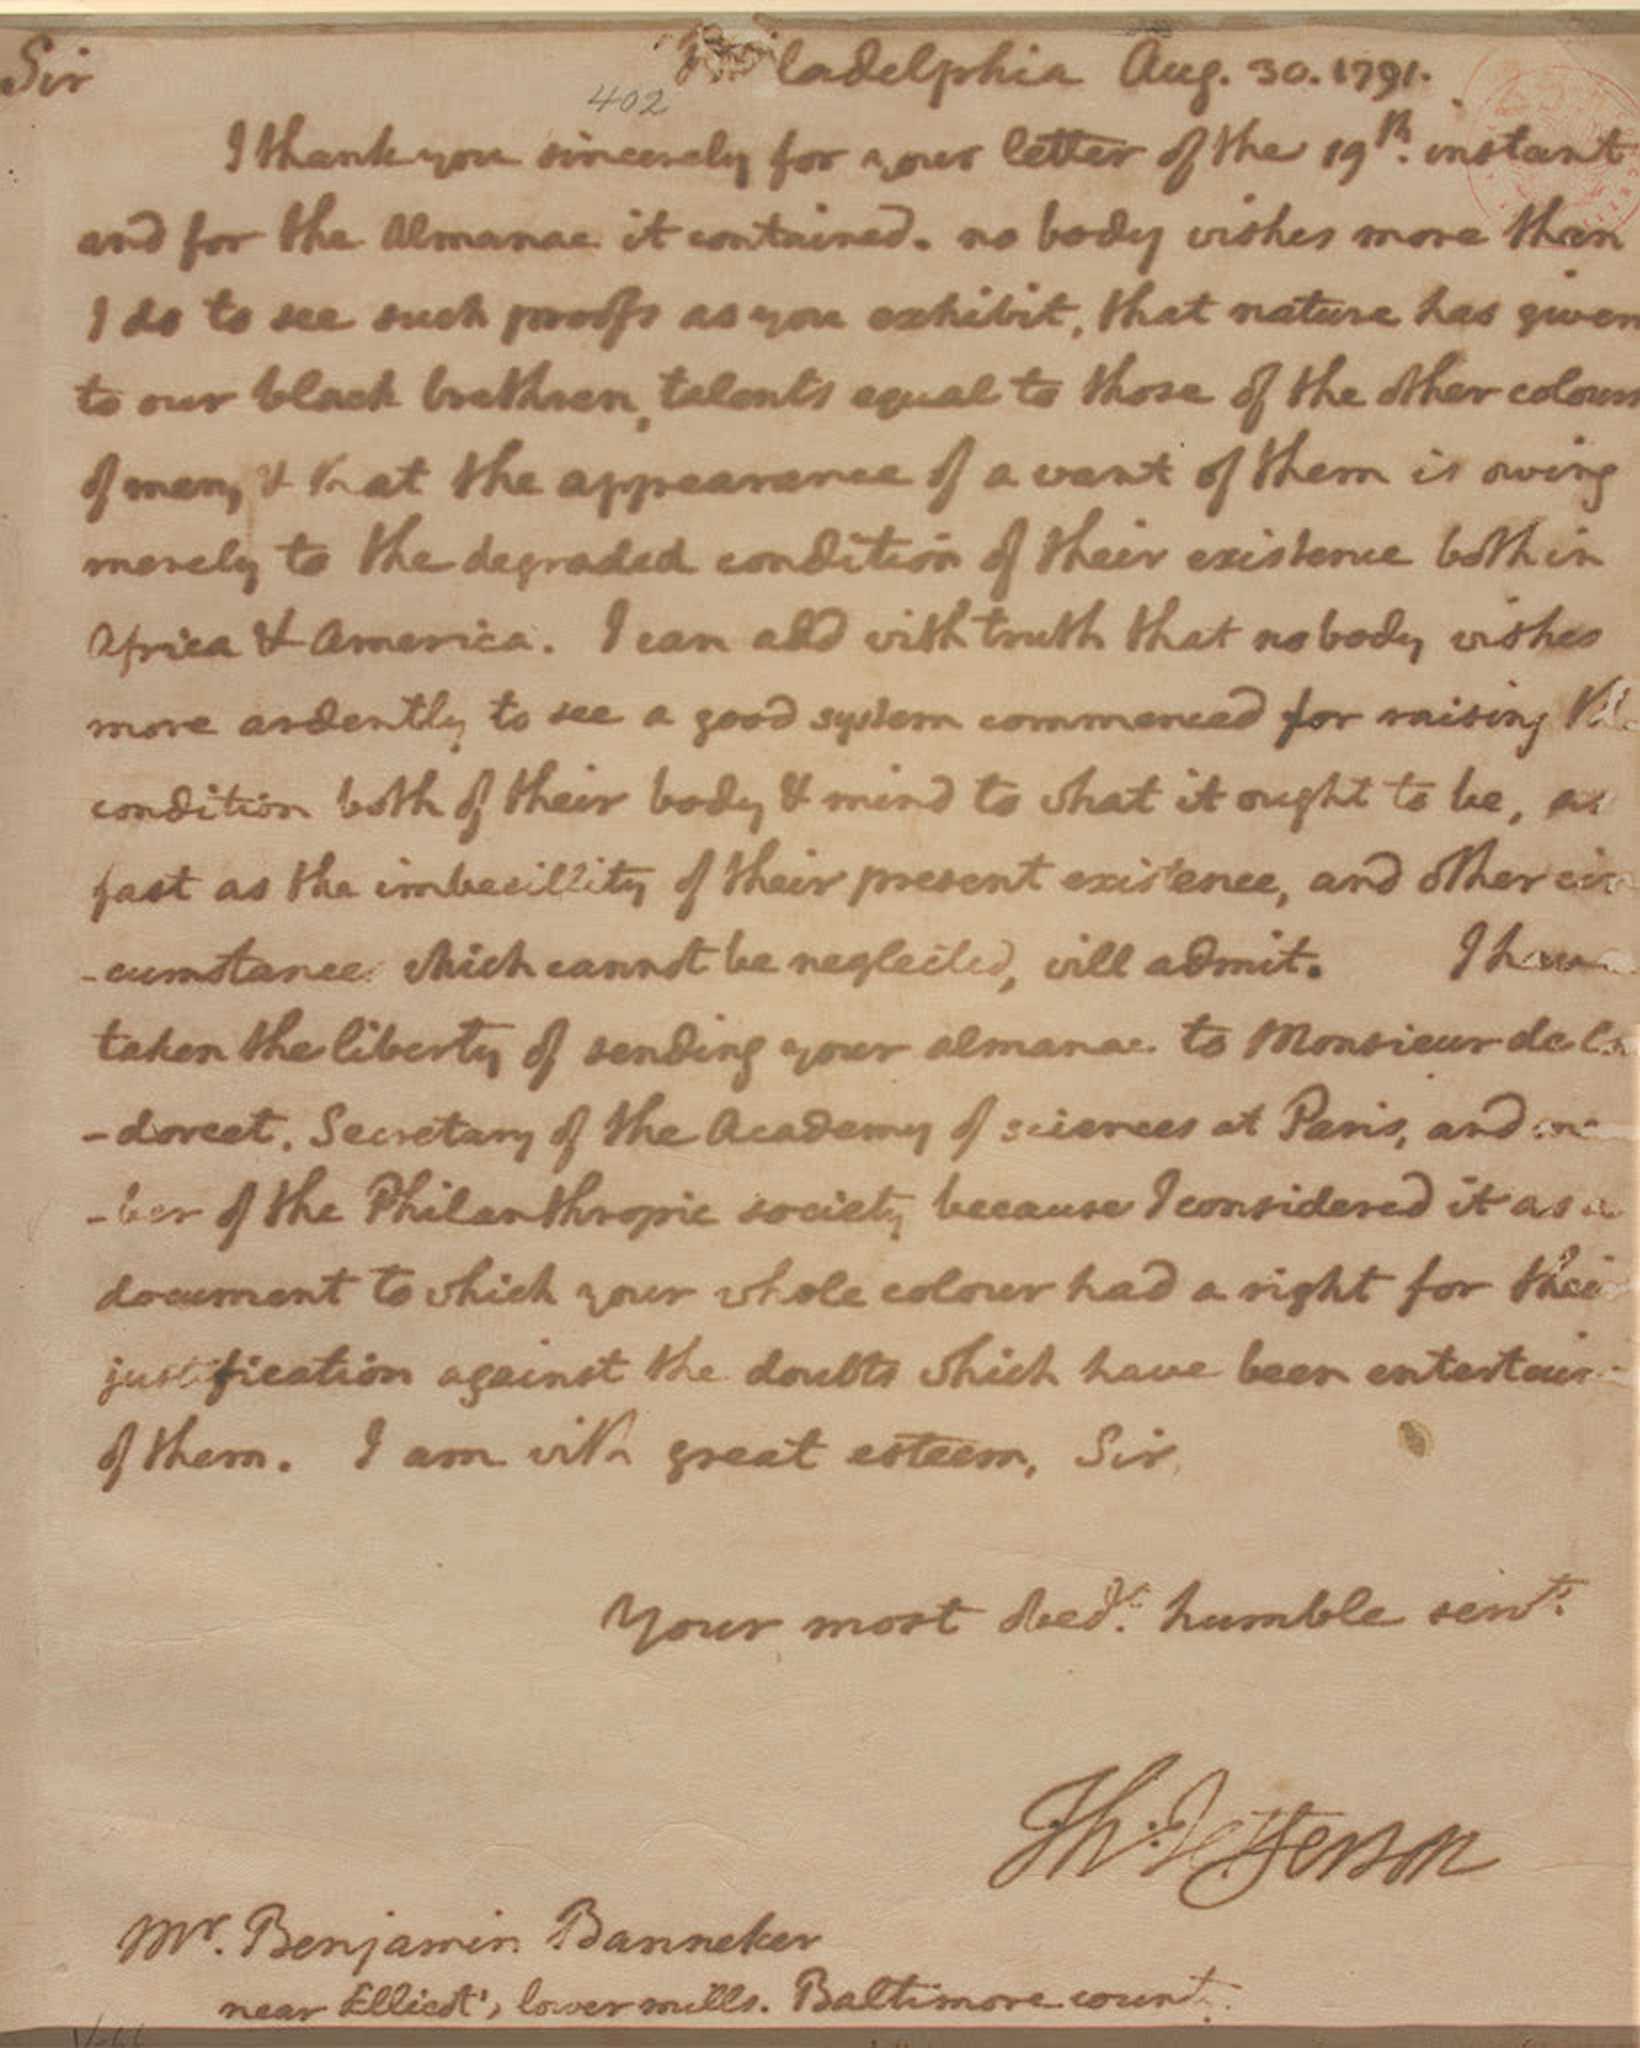 Sir
Philadelphia Aug. 30. 1791.
402
I thank you sincerely for your letter of the 19th. instant
and for the Almanac it contained. no body wishes more than
I do to see such proofs as you exhibit, that nature has given
to our black brethren, talents equal to those of the other colours
of men, & that the appearance of a want of them is owing
merely to the degraded condition of their existence both in
Africa & America. I can add with truth that no body wishes
more ardently to see a good system commenced for raising the
condition both of their body & mind to what it ought to be, as
fast as the imbecillity of their present existence, and other cir
-cumstance which cannot be neglected, will admit. I have
taken the liberty of sending your almanac to Monsieur de
-dorcet, Secretary of the Academy of sciences at Paris, and
-ber of the Philanthropic society because I considered it as a
document to which your whole colour had a right for their
justification against the doubts which have been entertain
of them. I am with great esteem, Sir,
Your most obedt. humble servt.
Th: Jefferson
Mr. Benjamin Banneker
near Ellicot's, lower mills. Baltimore county.